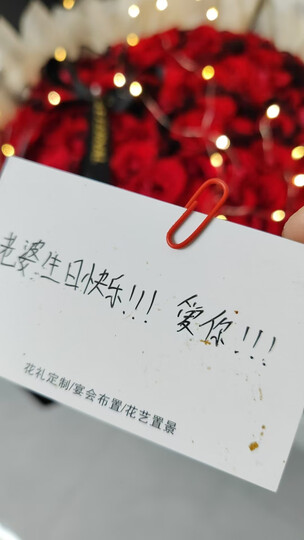 老婆生日快乐!!! 爱你!!!
花礼定制/宴会布置/花艺置景